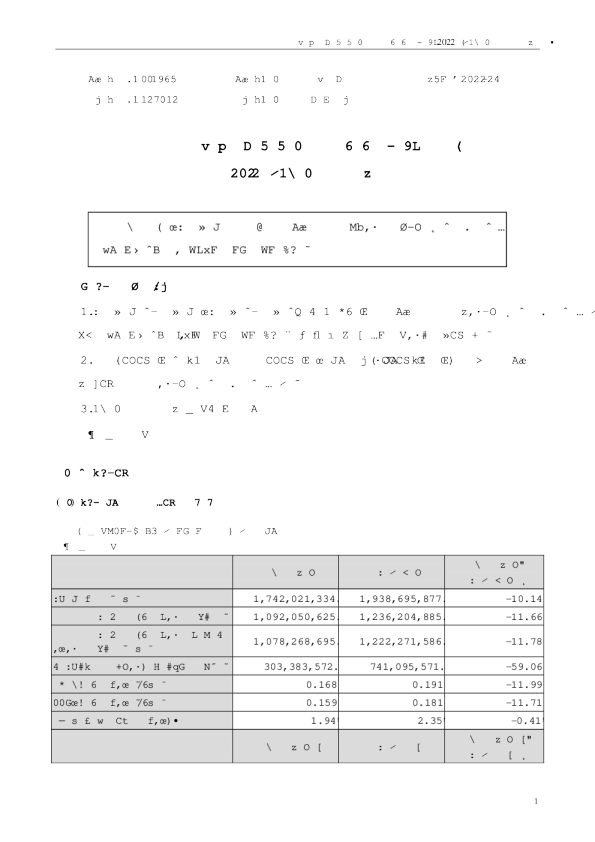 v p D 5 5 0 6 6 - 9L 2022 /1\ 0 z
Aæ h .1 001965 Aæ h1 0 v D z5F ′ 2022-24
j h .1 127012 j h1 0 D E j
v p D 5 5 0 6 6 - 9L (
2022 /1\ 0 z
\ ( œ: » J @ Aæ Mb,· Ø-O ¸ ˆ . ˆ …
wA E› ˆB , WLxF FG WF %? ˜
G ?- Ø /j
1.: » J ˆ- » J œ: » ˆ- » ˆQ 4 1 *6 Œ Aæ z,·-O ¸ ˆ . ˆ … /
X< wA E› ˆB FG WF %? ¨ ƒ fl ı Z [ …F V,·# »CS + ˜
2. (COCS Œ ˆ k1 JA COCS Œ œ JA j Œ) > Aæ
z ]CR ,·-O ¸ ˆ . ˆ … / ˜
3.1\ 0 z _ V4 E A
¶ _ V
0 ˆ k?-CR
( 0) k?- JA …CR 7 7
( _ VM0F-$ B3 / FG F ) / JA
¶ _ V
\ z O : / < O \ z O"
: / < O ¸
:U J f ˜ s ¨ 1,742,021,334. 1,938,695,877. -10.14
: 2 (6 L,· Y# ˜ 1,092,050,625. 1,236,204,885. -11.66
: 2 (6 L,· L M 4
,œ,· Y# ˜ s ¨ 1,078,268,695. 1,222,271,586. -11.78
4 :U#k +O,·) H #qG N˝ ˜ 303,383,572. 741,095,571. -59.06
* \! 6 f,œ ˜/6s ¨ 0.168 0.191 -11.99
00Gœ! 6 f,œ ˜/6s ¨ 0.159 0.181 -11.71
— s £ w Ct f,œ)• 1.94 2.35 -0.41
\ z O [ : / [ \ z O ["
: / [ ¸
1